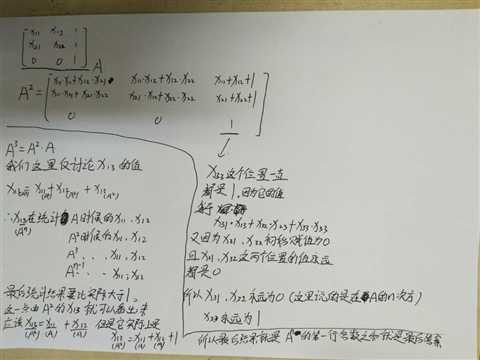 x11 x12 1
x21 x22 1
0 0 1
A
A²=
x11·x11+x12·x21 x11·x12+x12·x22 x11+x12+1
x21·x11+x21·x22 x21·x12+x22·x22 x21+x22+1
0 0 1
A³=A²·A
我们这里仅讨论x13的值
x13 = x11 + x12 + x13
(A) (A) (A²)
∴x13在统计A时候的x11,x12
(Aⁿ)
A²时候的x11,x12
A³ . . x11,x12
Aⁿ⁻¹ . . x11,x12
最后统计结果要比实际大于1,
这一点由A²的x13就可以看出来
应该x13=x11+x12 但是它实际上是
(A²) (A) (A)
x13=x11+x12+1
(A²) (A) (A)
x33这个位置一直
都是1,因为它的值
等于
x31·x13+x32·x23+x33·x33
又因为x31,x32初始赋值为0
且x31,x32这两个位置的值永远
都是0
所以x31,x32永远为0(这里说的是在A的n次方)
x33永远为1
所以最后结果就是Aⁿ的第一行各数之和就是最后答案